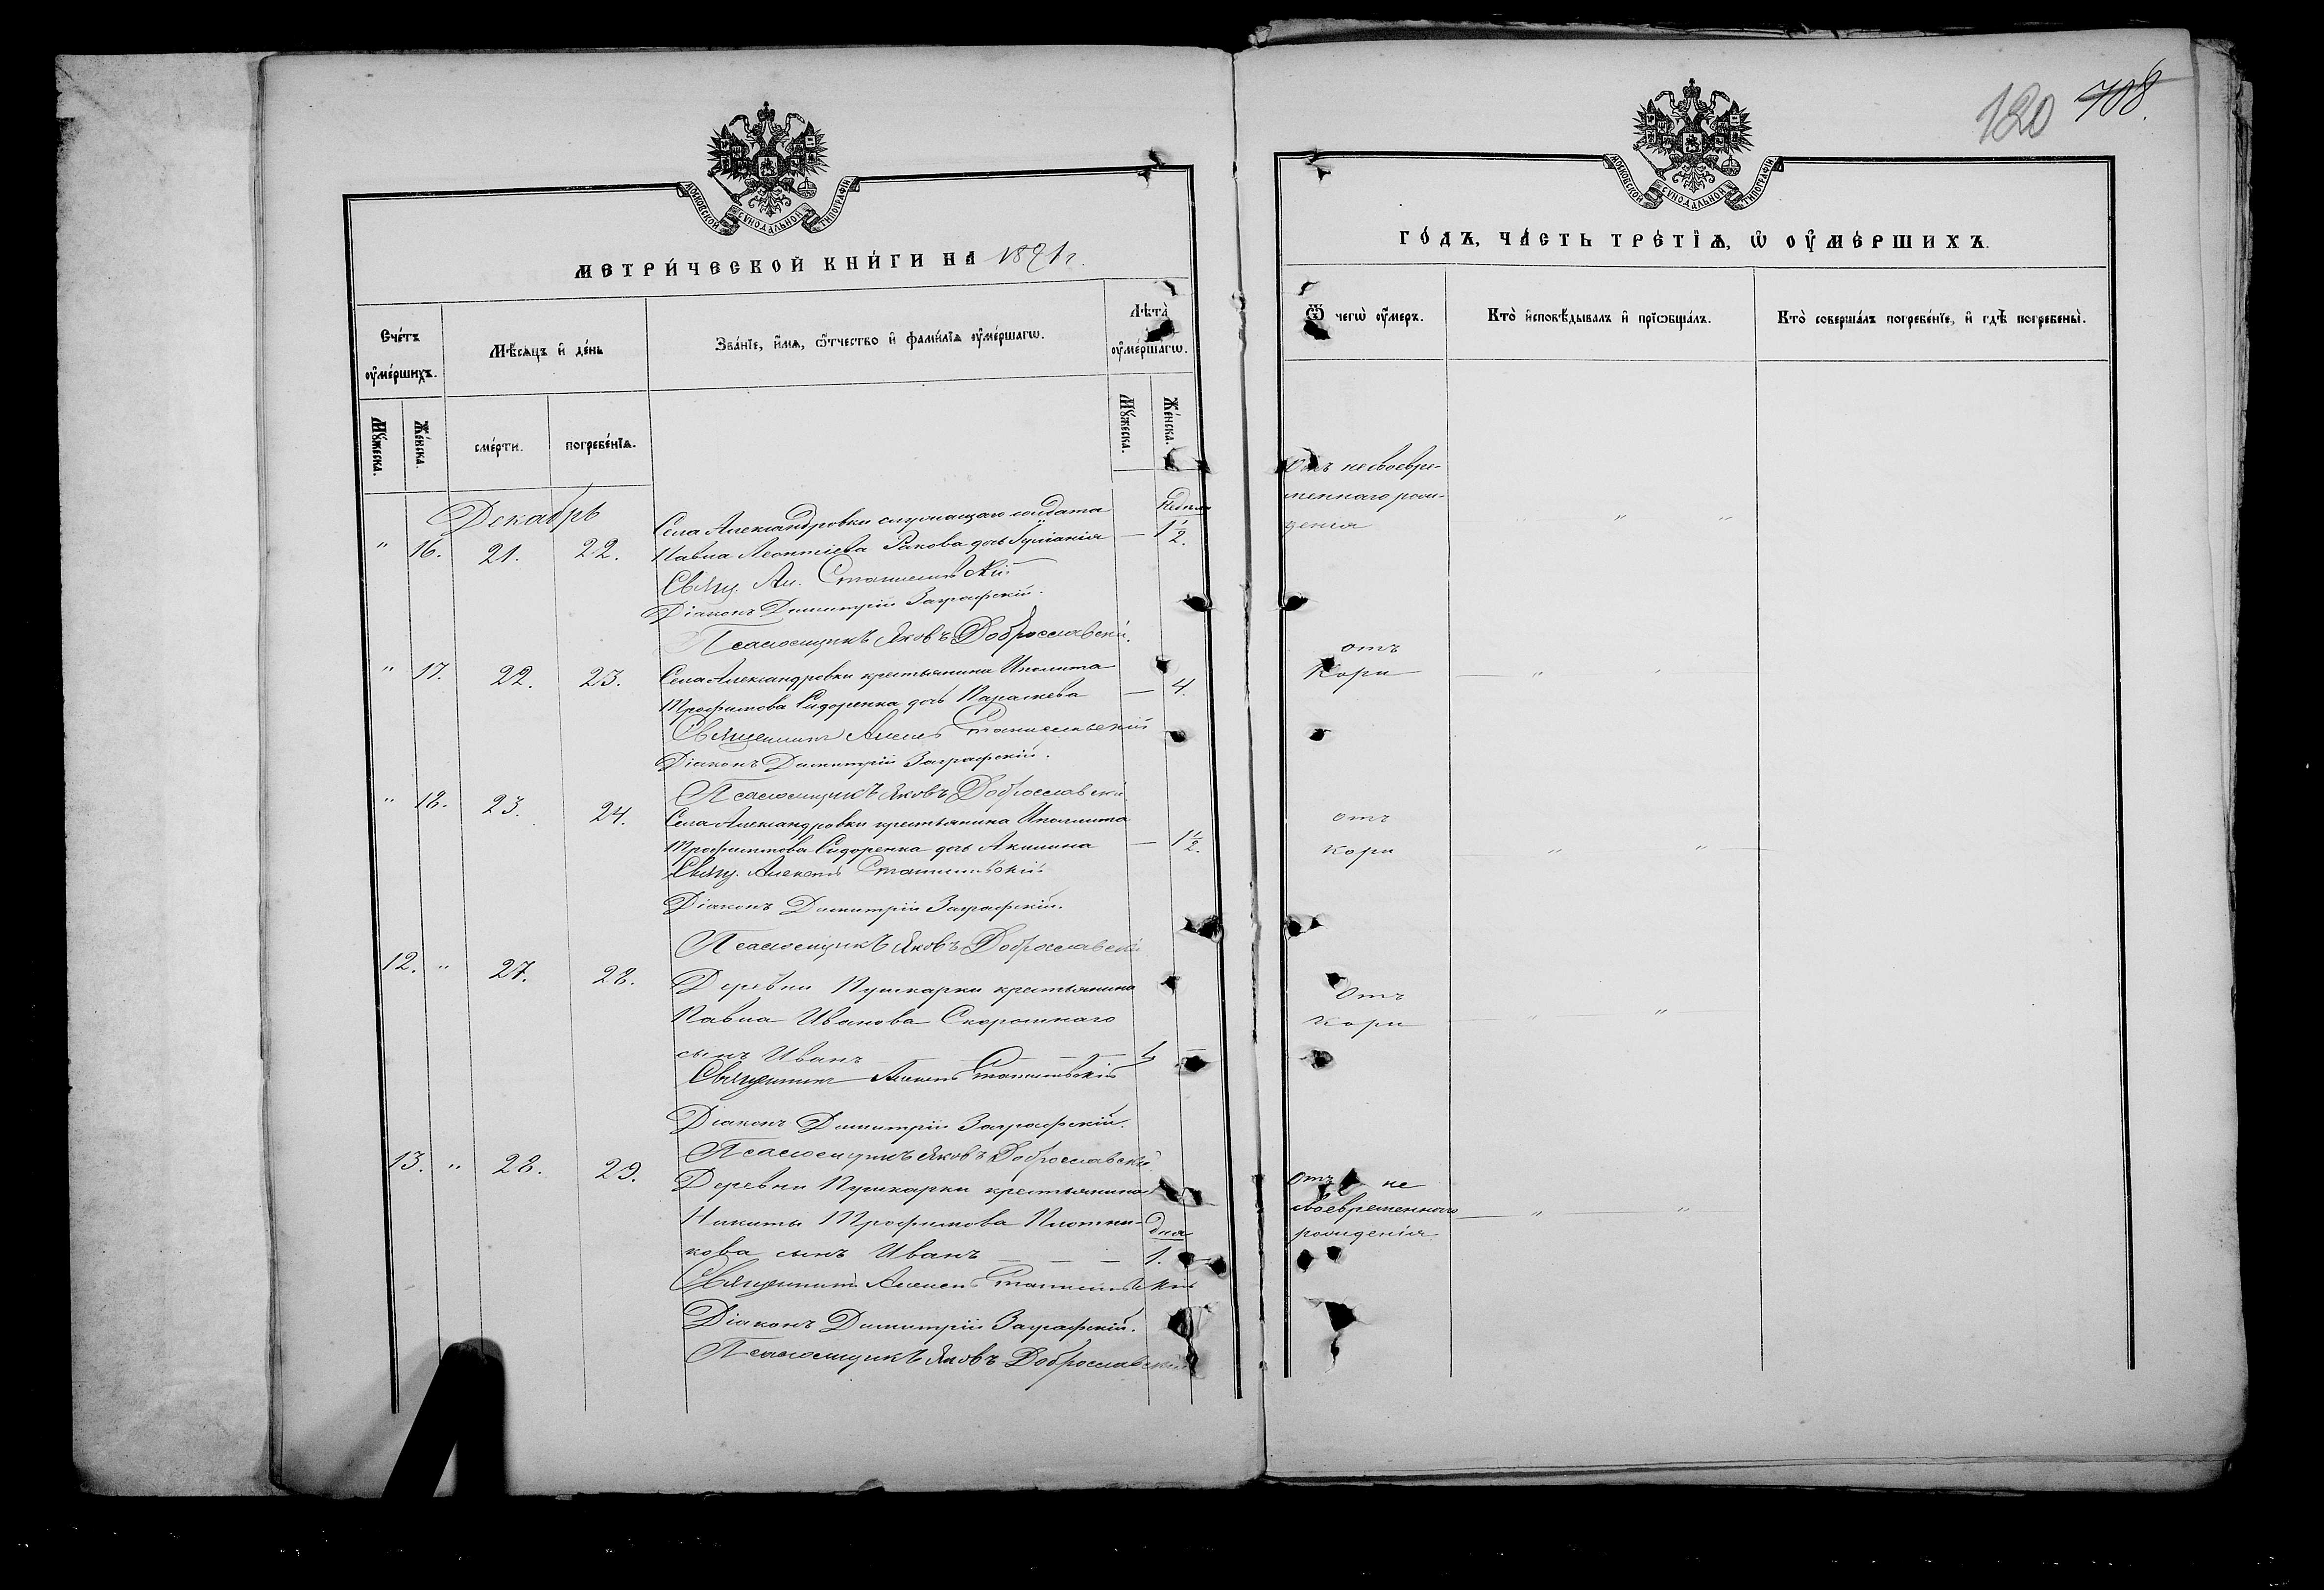 120 708.
МОСКОВСКОЙ СѴНОДАЛЬНОЙ ТИПОГРАФІИ
МЕТРИ́ЧЕСКОЙ КНИ́ГИ НА 1891 г.
Сче́тъ ᲂу҆ме́ршихъ.
Мѣ́сѧцъ и҆ де́нь
Зва́нїе, и҆́мѧ, ѻ҆́тчество и҆ фами́лїѧ ᲂу҆ме́ршагѡ.
Лѣ́та ᲂу҆ме́ршагѡ.
Мꙋ́жеска.
Же́нска.
сме́рти.
погребе́нїѧ.
Мꙋ́жеска.
Же́нска.
Декабрь
" 16. 21. 22.
Села Александровки служащаго солдата
Павла Леонтіева Ракова дочь Іуліанія — 1½.
Свящ. Ал.
Діаконъ Димитрій Заграфскій.
Псаломщикъ Яковъ Доброславскій.
" 17. 22. 23.
Села Александровки крестьянина Иполита
Трофимова Сидоренка дочь Параскева — 4.
Священникъ Алексѣй
Діаконъ Димитрій Заграфскій.
Псаломщикъ Яковъ Доброславскій
" 18. 23. 24.
Села Александровки крестьянина Ипполита
Трофимова Сидоренка дочь Акилина — 1½.
Свящ. Алексѣй
Діаконъ Димитрій Заграфскій.
Псаломщикъ Яковъ Доброславскій
12. " 27. 28.
Деревни Пушкарки крестьянина
Павла Иванова Скоромнаго
сынъ Иванъ — — — —
Священникъ Алексѣй
Діаконъ Димитрій Заграфскій.
Псаломщикъ Яковъ Доброславскій
13. " 28. 29.
Деревни Пушкарки крестьянина
Никиты Трофимова Плотни-
дня
кова сынъ Иванъ — — — 1. —
Священникъ Алексѣй
Діаконъ Димитрій Заграфскій.
Псаломщикъ Яковъ Доброславскій
МОСКОВСКОЙ СѴНОДАЛЬНОЙ ТИПОГРАФІИ
ГО́ДЪ, ЧА́СТЬ ТРЕ́ТЇѦ, Ѡ҆ ОУ҆МЕ́РШИХЪ.
Ѿ чегѡ̀ ᲂу҆́меръ.
Кто̀ и҆сповѣ́дывалъ и҆ прїѡбща́лъ.
Кто̀ соверша́лъ погребе́нїе, и҆ гдѣ̀ погребены̀.
Отъ несвоевре-
меннаго рож-
денія " " "
отъ
Кори " "
отъ
кори " "
отъ
кори " "
отъ не
своевременнаго " "
рожденія